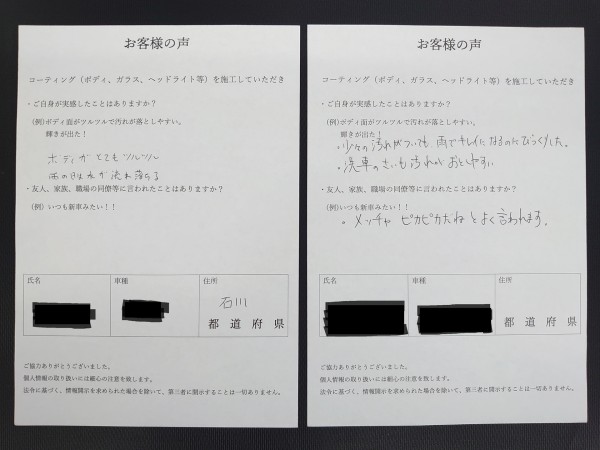 お客様の声
コーティング（ボディ、ガラス、ヘッドライト等）を施工していただき
・ご自身が実感したことはありますか？
（例）ボディ面がツルツルで汚れが落としやすい。
輝きが出た！
ボディがとてもツルツル
雨の日は水が流れ落ちる
・友人、家族、職場の同僚等に言われたことはありますか？
（例）いつも新車みたい！！
氏名
車種
住所
石川
都 道 府 県
ご協力ありがとうございました。
個人情報の取り扱いには細心の注意を致します。
法令に基づく、情報開示を求められた場合を除いて、第三者に開示することは一切ありません。
お客様の声
コーティング（ボディ、ガラス、ヘッドライト等）を施工していただき
・ご自身が実感したことはありますか？
（例）ボディ面がツルツルで汚れが落としやすい。
輝きが出た！
・少々の汚れがついても、雨でキレイになるのにびっくりした。
・洗車のさいも汚れがおとしやすい
・友人、家族、職場の同僚等に言われたことはありますか？
（例）いつも新車みたい！！
・メッチャ ピカピカだねとよく言われます。
氏名
車種
住所
都 道 府 県
ご協力ありがとうございました。
個人情報の取り扱いには細心の注意を致します。
法令に基づく、情報開示を求められた場合を除いて、第三者に開示することは一切ありません。